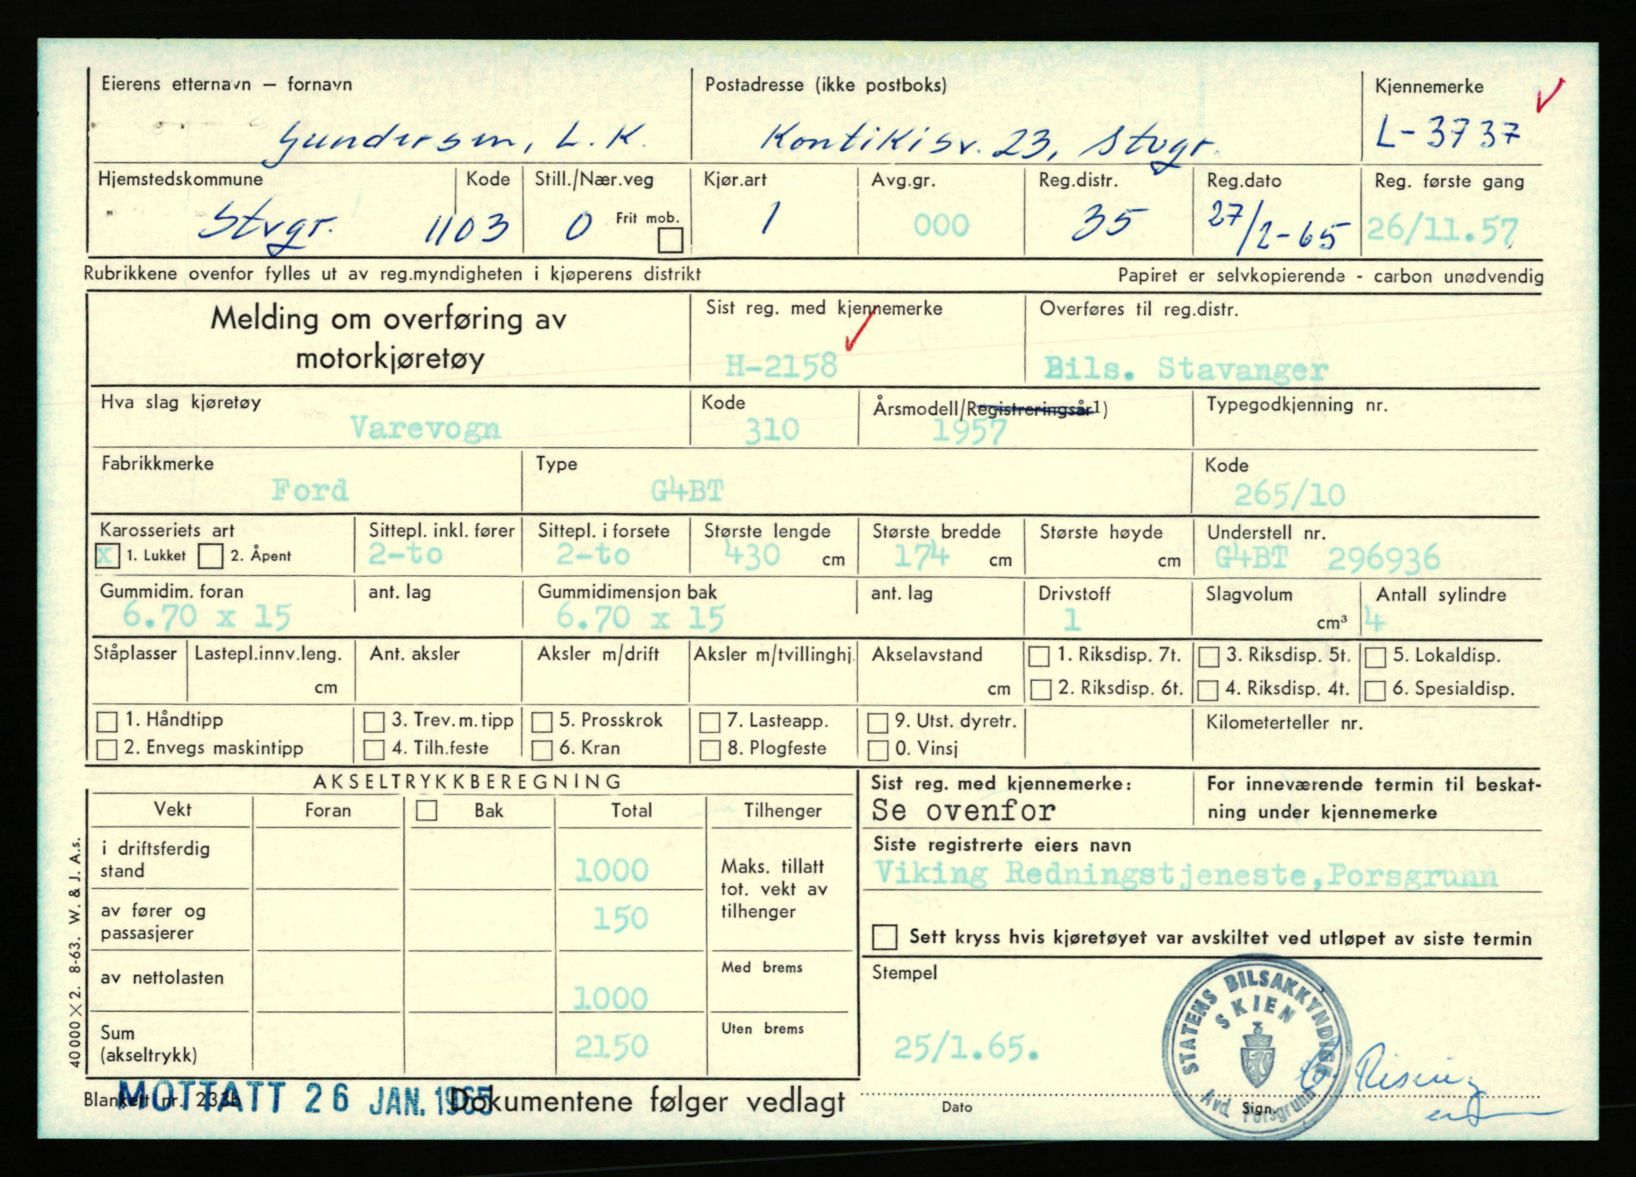 Eierens etternavn — fornavn
Gundersen, L.K.
Postadresse (ikke postboks)
Kontikisv. 23, Stvgr.
Kjennemerke
L-3737
Hjemstedskommune
Stvgr.
Kode
1103
Still./Nær.veg
0 Frit mob.
Kjør.art
1
Avg.gr.
000
Reg.distr.
35
Reg.dato
27/2-65
Reg. første gang
26/11.57
Rubrikkene ovenfor fylles ut av reg.myndigheten i kjøperens distrikt
Papiret er selvkopierende - carbon unødvendig
Melding om overføring av
motorkjøretøy
Sist reg. med kjennemerke
H-2158
Overføres til reg.distr.
Bils. Stavanger
Hva slag kjøretøy
Varevogn
Kode
310
Årsmodell/Registreringsår1)
1957
Typegodkjenning nr.
Fabrikkmerke
Ford
Type
G4BT
Kode
265/10
Karosseriets art
x 1. Lukket 2. Åpent
Sittepl. inkl. fører
2-to
Sittepl. i forsete
2-to
Største lengde
430 cm
Største bredde
174 cm
Største høyde
cm
Understell nr.
G4BT 296936
Gummidim. foran
6.70 x 15
ant. lag
Gummidimensjon bak
6.70 x 15
ant. lag
Drivstoff
1
Slagvolum
cm³
Antall sylindre
4
Ståplasser
Lastepl.innv.leng.
cm
Ant. aksler
Aksler m/drift
Aksler m/tvillinghj.
Akselavstand
cm
1. Riksdisp. 7t.
2. Riksdisp. 6t.
3. Riksdisp. 5t.
4. Riksdisp. 4t.
5. Lokaldisp.
6. Spesialdisp.
1. Håndtipp
2. Envegs maskintipp
3. Trev.m.tipp
4. Tilh.feste
5. Prosskrok
6. Kran
7. Lasteapp.
8. Plogfeste
9. Utst. dyretr.
0. Vinsj
Kilometerteller nr.
AKSELTRYKKBEREGNING
Vekt
Foran
Bak
Total
Tilhenger
i driftsferdig
stand
1000
av fører og
passasjerer
150
av nettolasten
1000
Sum
(akseltrykk)
2150
Maks. tillatt
tot. vekt av
tilhenger
Med brems
Uten brems
Sist reg. med kjennemerke:
Se ovenfor
For inneværende termin til beskat-
ning under kjennemerke
Siste registrerte eiers navn
Viking Redningstjeneste,Porsgrunn
Sett kryss hvis kjøretøyet var avskiltet ved utløpet av siste termin
Stempel
STATENS BILSAKKYNDIGE
SKIEN
Avd Porsgrunn
25/1.65.
Dato
Sign.
40000 X 2. 8-63. W. & J. A.s.
Blankett nr. 233b
MOTTATT 26 JAN. 1965
Dokumentene følger vedlagt